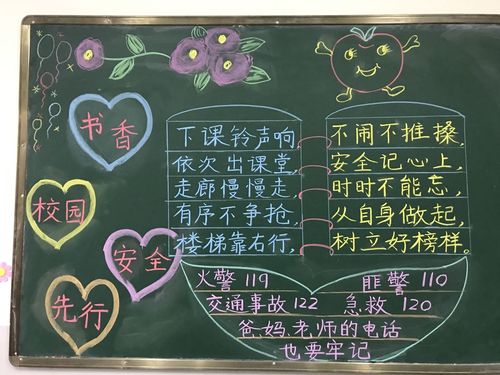 书香
校园
安全
先行
下课铃声响,
依次出课堂,
走廊慢慢走,
有序不争抢,
楼梯靠右行,
不闹不推搡,
安全记心上,
时时不能忘,
从自身做起,
树立好榜样。
火警 119
匪警 110
交通事故 122
急救 120
爸、妈、老师的电话
也要牢记